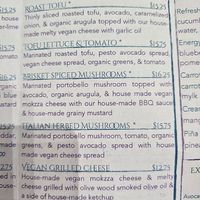 ROAST TOFU * $16.25
Thinly sliced roasted tofu, avocado, caramelized
onion, & organic arugula topped with our house
made melty vegan cheese with garlic oil
TOFU LETTUCE & TOMATO * $15.75
Marinated roasted tofu, pesto avocado spread
vegan cheese spread, organic greens, & tomato
BRISKET SPICED MUSHROOMS * $16.25
Marinated portobello mushroom topped with
avocado, organic arugula, & house made vegan
mokzza cheese with our house-made BBQ sauce
& house-made grainy mustard
ITALIAN HERBED MUSHROOMS * $15.75
Marinated portobello mushroom, tomato, organic
greens, & pesto avocado spread with house
made vegan cheese spread
VEGAN GRILLED CHEESE $12.75
House-made vegan mokzza cheese & melty
cheese grilled with olive wood smoked olive oil &
a side of house-made ketchup
$15.25
house
$15.75
organic
$16.25
Refresh
cucum
water,
Energy
blueb
pome
Creati
EX
Avoca